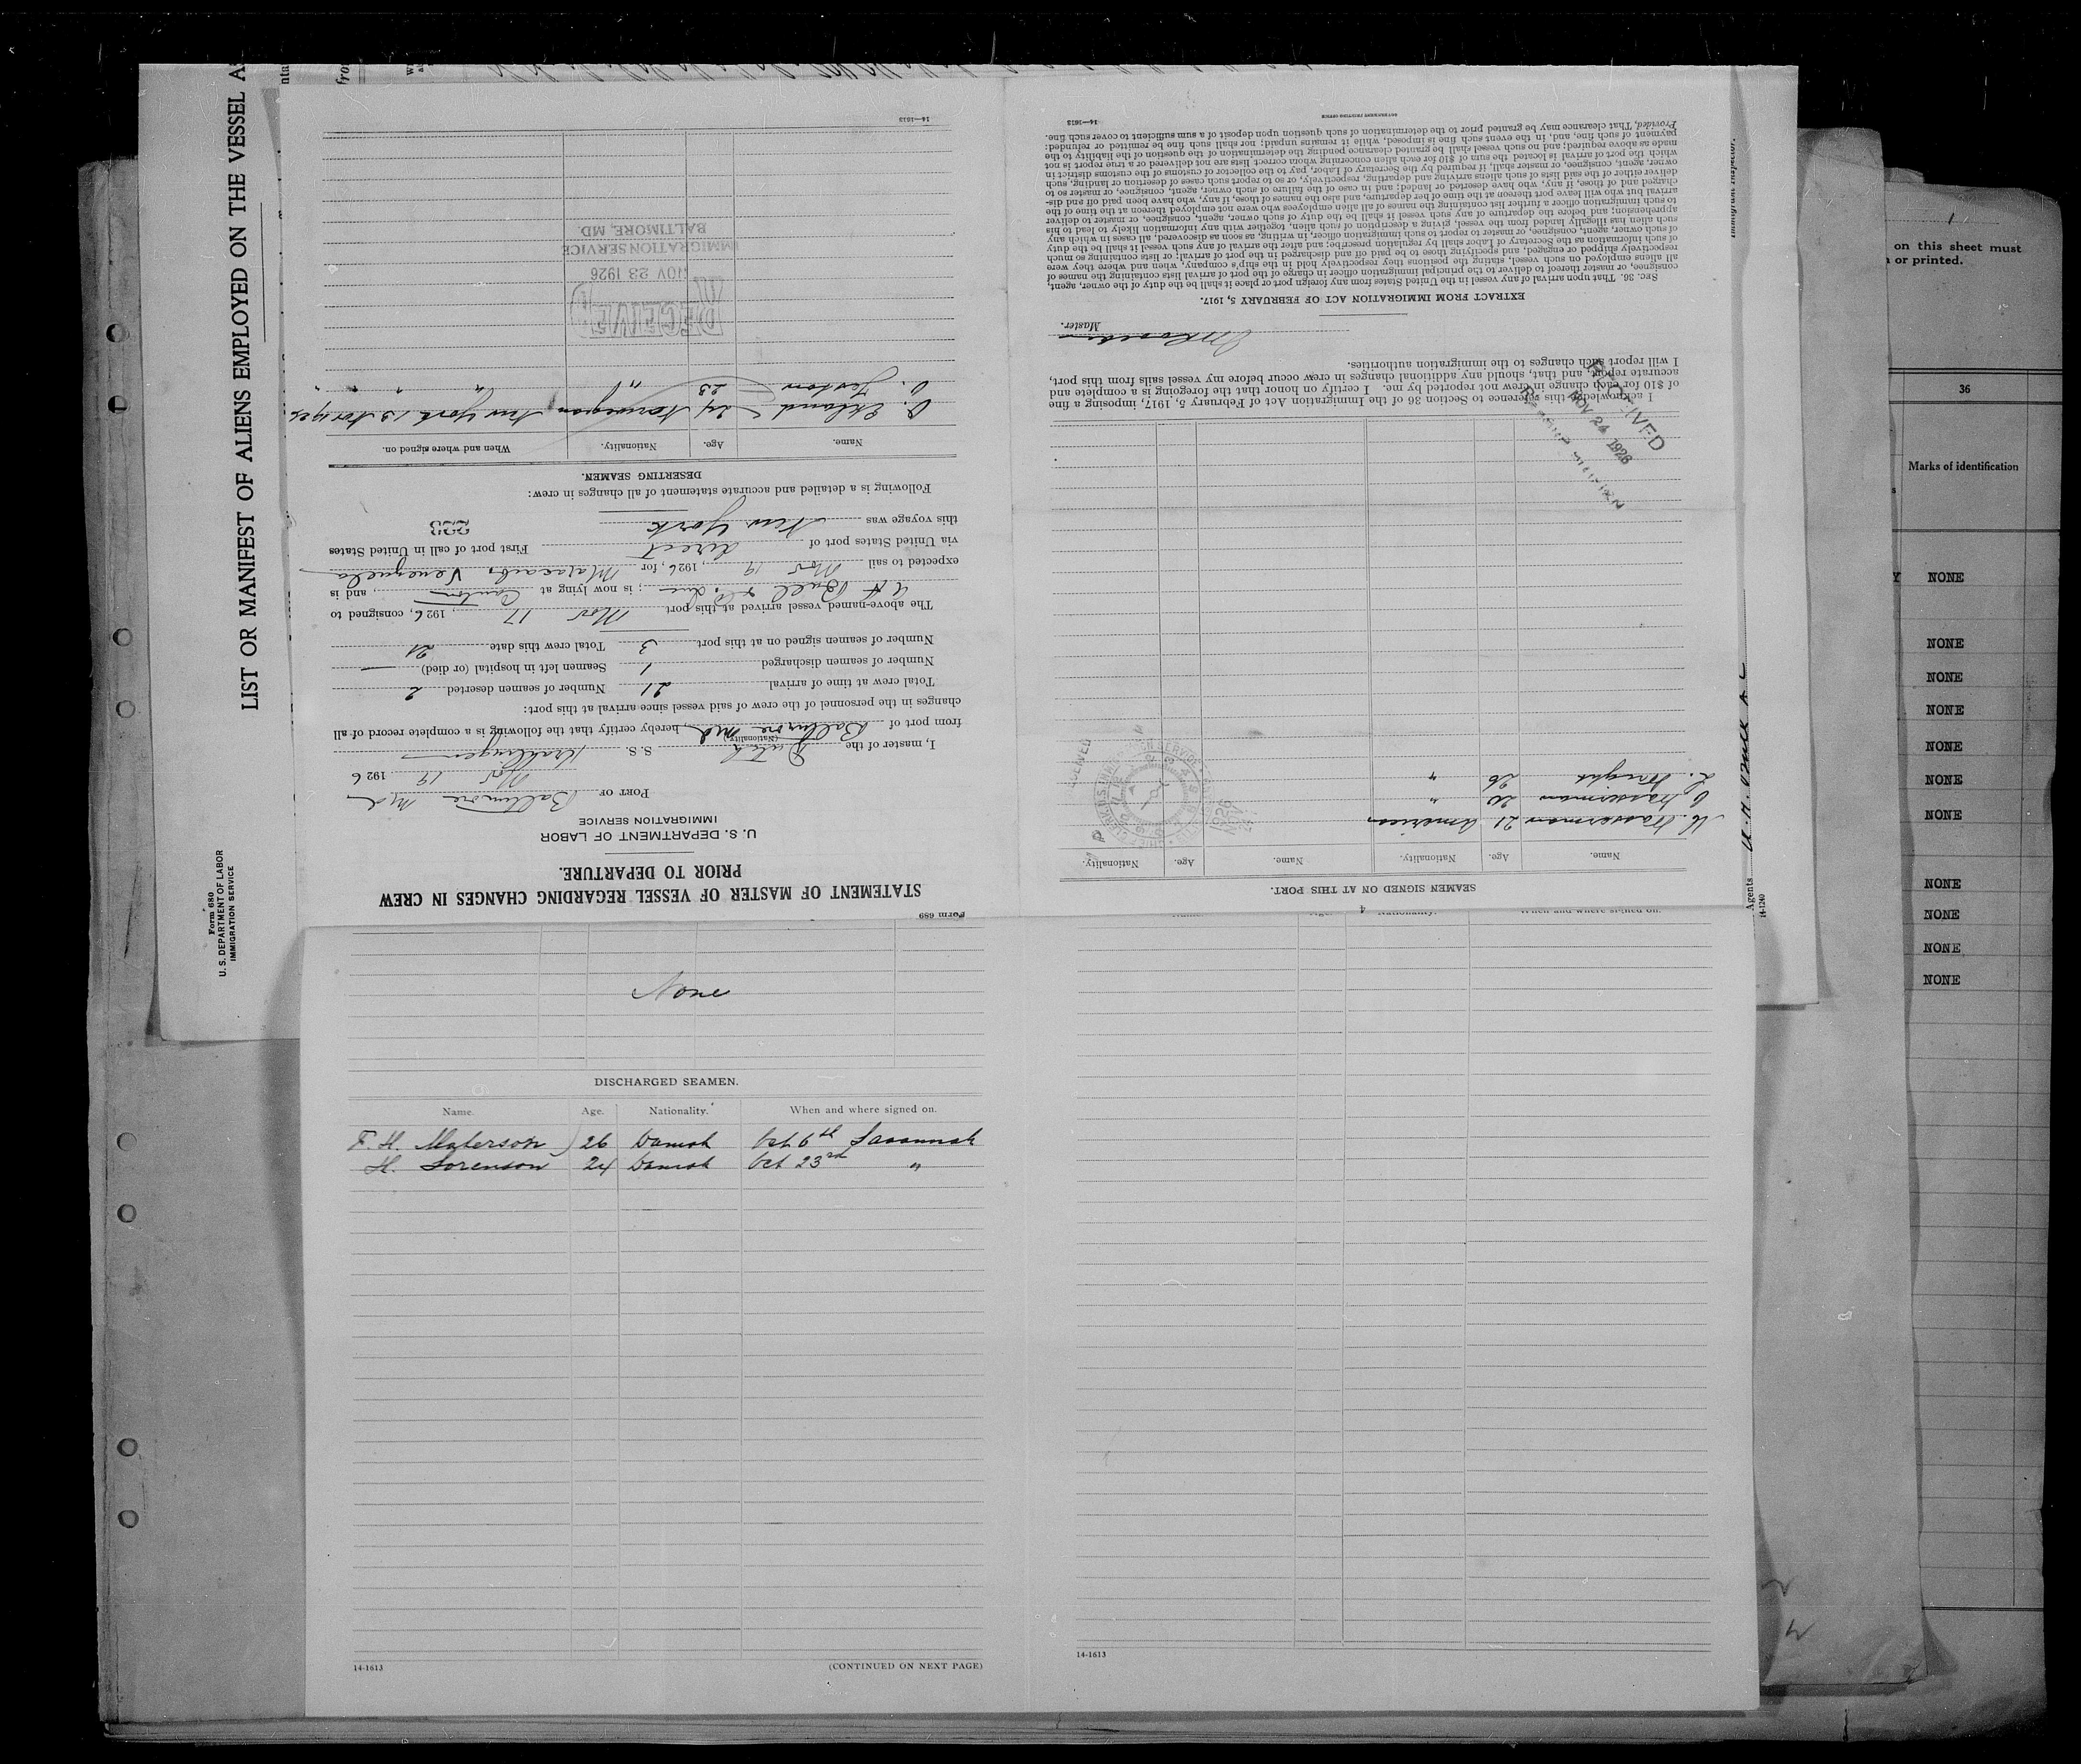 LIST OR MANIFEST OF ALIENS EMPLOYED ON THE VESSEL
Form 680
U. S. DEPARTMENT OF LABOR
IMMIGRATION SERVICE
Form 689
STATEMENT OF MASTER OF VESSEL REGARDING CHANGES IN CREW
PRIOR TO DEPARTURE.
U. S. DEPARTMENT OF LABOR
IMMIGRATION SERVICE
PORT OF Baltimore Md
Nov 19 1926
I, master of the Dutch S. S. Kralingen
(Nationality)
from port of Baltimore Md, hereby certify that the following is a complete record of all
changes in the personnel of the crew of said vessel since arrival at this port:
Total crew at time of arrival 21 Number of seamen deserted 2
Number of seamen discharged 1 Seamen left in hospital (or died) —
Number of seamen signed on at this port 3 Total crew this date 21
The above-named vessel arrived at this port Nov 17, 1926, consigned to
A H Bull & Co. Inc; is now lying at Canton, and is
expected to sail Nov 19, 1926, for Maracaibo, Venezuela
via United States port of direct First port of call in United States
this voyage was New York
223
Following is a detailed and accurate statement of all changes in crew:
DESERTING SEAMEN.
Name. Age. Nationality. When and where signed on.
24 Norwegian New York 13 Nov 1926
23 " " " "
RECEIVED
NOV 23 1926
IMMIGRATION SERVICE
BALTIMORE, MD.
14—1613
SEAMEN SIGNED ON AT THIS PORT.
Name. Age. Nationality. Name. Age. Nationality.
21 American
20 "
26 "
I acknowledge this reference to Section 36 of the Immigration Act of February 5, 1917, imposing a fine
of $10 for each change in crew not reported by me. I certify on honor that the foregoing is a complete and
accurate report, and that, should any additional changes in crew occur before my vessel sails from this port,
I will report such changes to the immigration authorities.
Master.
RECEIVED
NOV 24 1926
EXTRACT FROM IMMIGRATION ACT OF FEBRUARY 5, 1917.
Sec. 36. That upon arrival of any vessel in the United States from any foreign port or place it shall be the duty of the owner, agent,
consignee, or master thereof to deliver to the principal immigration officer in charge of the port of arrival lists containing the names of
all aliens employed on such vessel, stating the positions they respectively hold in the ship's company, when and where they were
respectively shipped or engaged, and specifying those to be paid off and discharged in the port of arrival; or lists containing so much
of such information as the Secretary of Labor shall by regulation prescribe; and after the arrival of any such vessel it shall be the duty
of such owner, agent, consignee, or master to report to such immigration officer, in writing, as soon as discovered, all cases in which any
such alien has illegally landed from the vessel, giving a description of such alien, together with any information likely to lead to his
apprehension; and before the departure of any such vessel it shall be the duty of such owner, agent, consignee, or master to deliver
to such immigration officer a further list containing the names of all alien employees who were not employed thereon at the time of the
arrival but who will leave port thereon at the time of her departure, and also the names of those, if any, who have been paid off and dis-
charged and of those, if any, who have deserted or landed; and in case of the failure of such owner, agent, consignee, or master so to
deliver either of the said lists of such aliens arriving and departing, respectively, or so to report such cases of desertion or landing, such
owner, agent, consignee, or master shall, if required by the Secretary of Labor, pay to the collector of customs of the customs district in
which the port of arrival is located the sum of $10 for each alien concerning whom correct lists are not delivered or a true report is not
made as above required; and no such vessel shall be granted clearance pending the determination of the question of the liability to the
payment of such fine, and, in the event such fine is imposed, while it remains unpaid; nor shall such fine be remitted or refunded:
Provided, That clearance may be granted prior to the determination of such question upon deposit of a sum sufficient to cover such fine.
14—1613
GOVERNMENT PRINTING OFFICE
Immigrant Inspector.
Agents
14-1240
None
DISCHARGED SEAMEN.
Name. Age. Nationality. When and where signed on.
F. H. Materson 26 Danish Oct 6th Savannah
H. Sorenson 24 Danish Oct 23rd "
14-1613
(CONTINUED ON NEXT PAGE)
4
Nationality. When and where signed on.
14-1613
1
on this sheet must
or printed.
36
Marks of identification
NONE
NONE
NONE
NONE
NONE
NONE
NONE
NONE
NONE
NONE
NONE